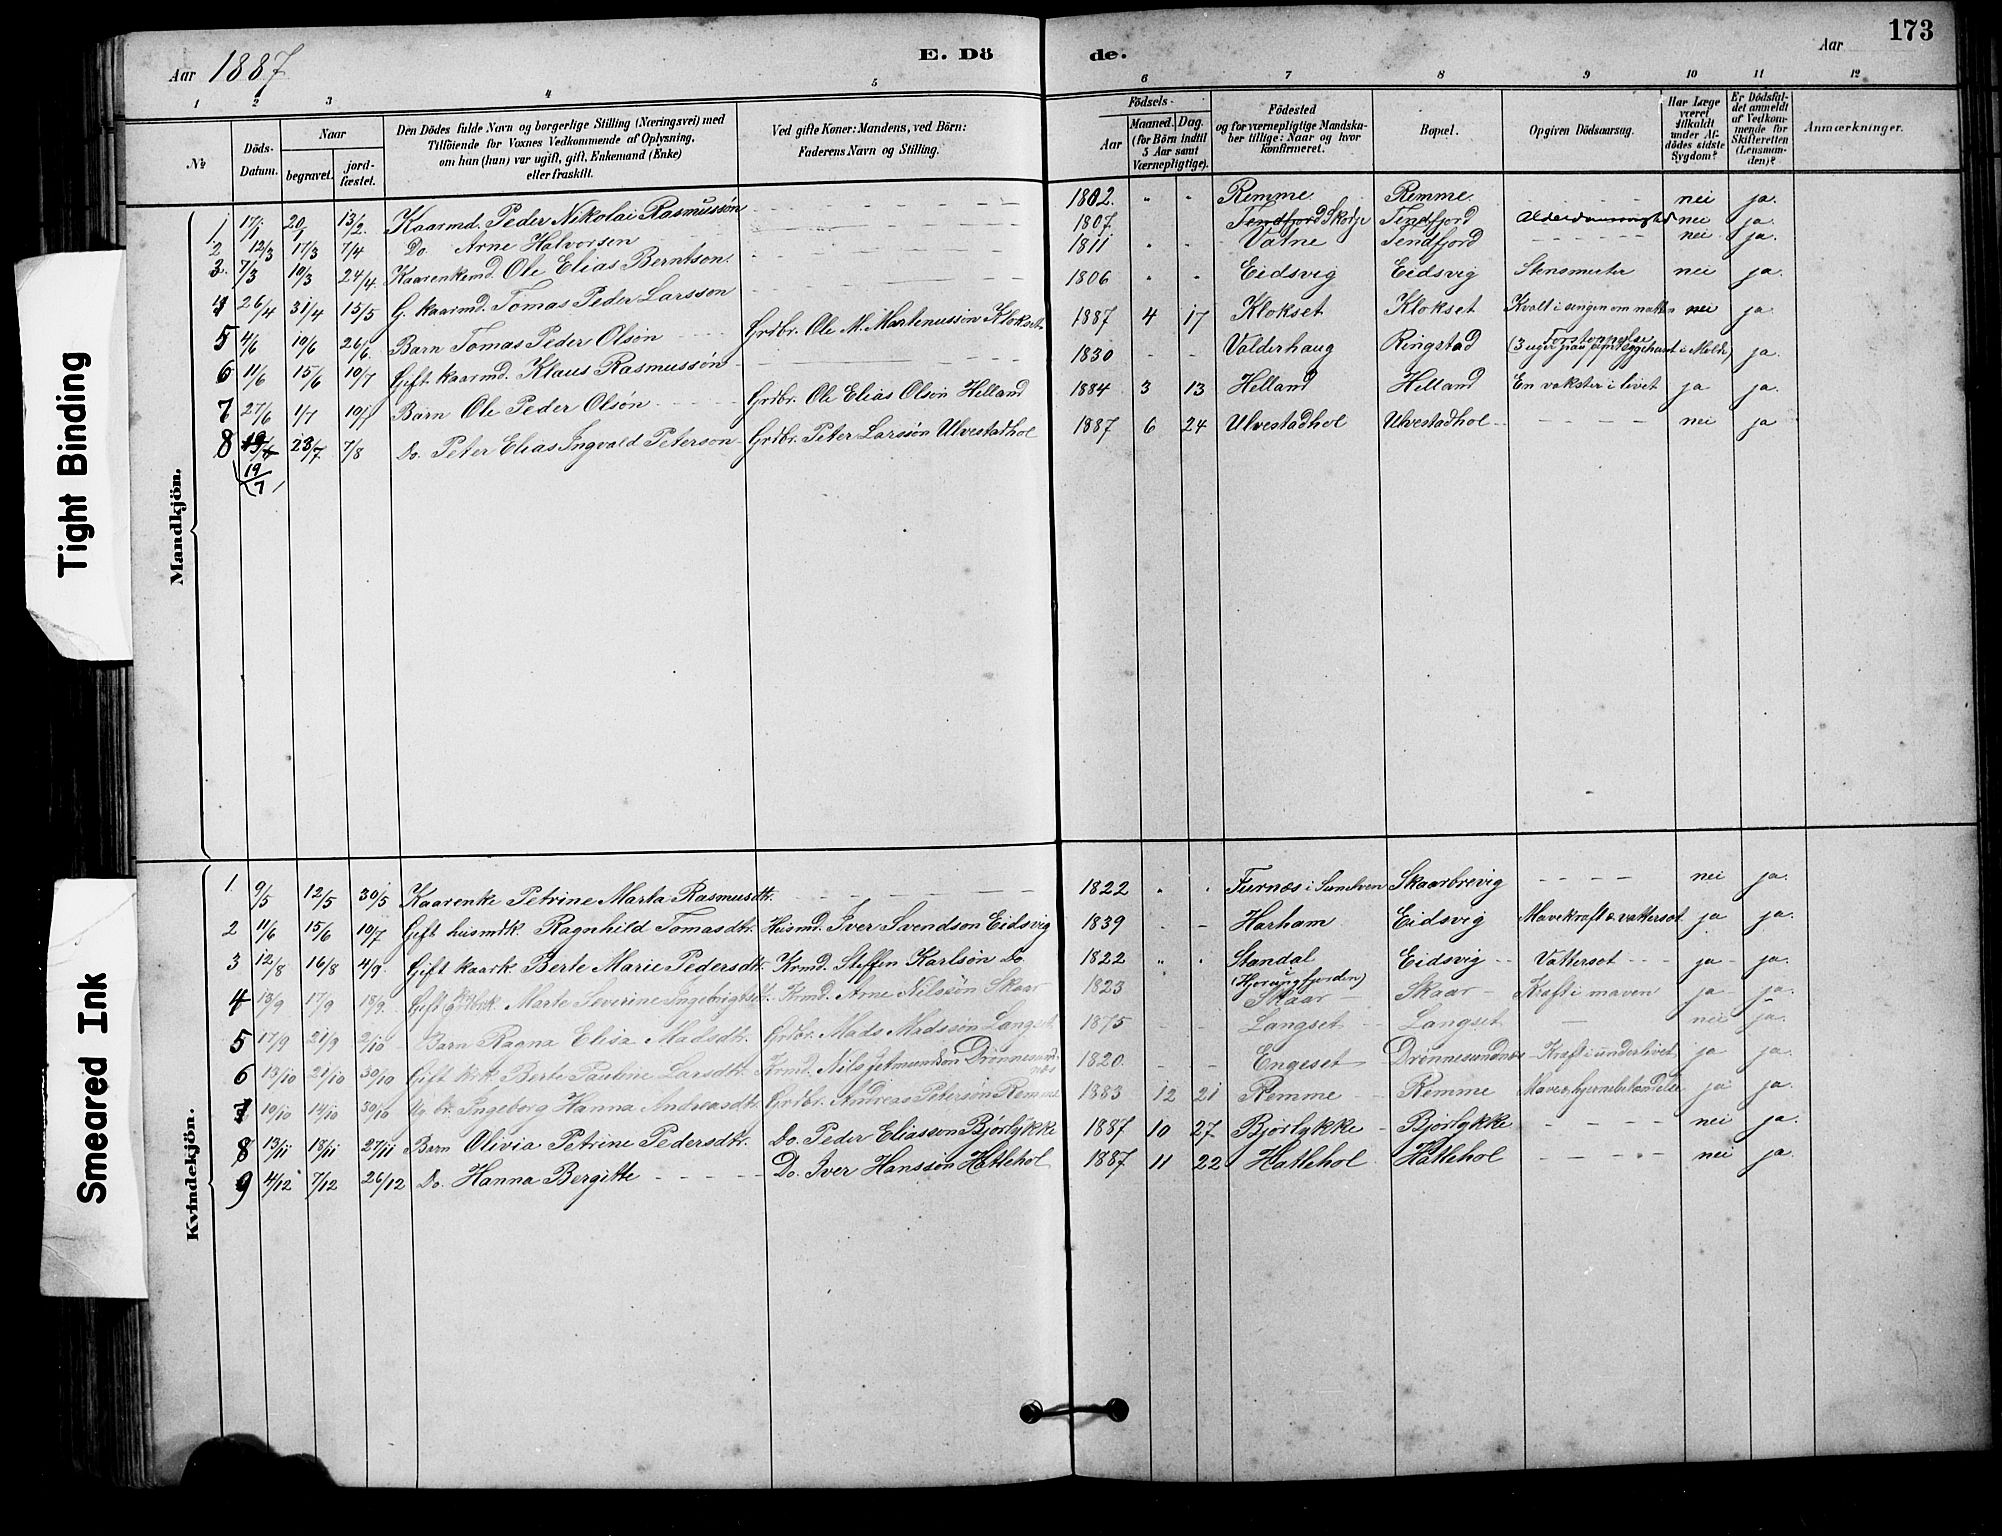 173
Aar 1887
E. Dö
de.
Aar
1 2 3 4 5 6 7 8 9 10 11 12
No
Döds-Datum.
Naar
begravet.
jord-fæstet.
Den Dödes fulde Navn og borgerlige Stilling (Næringsvei) med
Tilföiende for Voxnes Vedkommende af Oplysning,
om han (hun) var ugift, gift, Enkemand (Enke)
eller fraskilt.
Ved gifte Koner: Mandens, ved Börn:
Faderens Navn og Stilling.
Födsels-
Aar
Maaned. Dag.
(for Börn indtil
5 Aar samt
Værnepligtige).
Födested
og for værnepligtige Mandska-
ber tillige: Naar og hvor
konfirmeret.
Bopæl.
Opgiven Dödsaarsag.
Har Læge
været
tilkaldt
under Af-
dödes sidste
Sygdom?
Er Dödsfal-
det anmeldt
af Vedkom-
mende for
Skifteretten
(Lensman-
den)?
Anmærkninger.
Mandkjön.
1 17/1 20/1 13/2. Kaarmd. Peder Nikolai Rasmussön 1802. Remme Remme nei ja.
2 12/3 17/3 7/4 Do Arne Halvorsen 1807. Tendfjord Skodje Tendfjord nei ja.
3. 7/3 10/3 24/4. Kaarenkemd. Ole Elias Berntson. 1811 Vatne Tendfjord nei ja.
4 26/4 31/4 15/5 G. kaarmd. Tomas Peder Larsson 1806 Eidsvig Eidsvig Stensmerter nei ja.
5 4/6 10/6 26/6. Barn Tomas Peder Olson Grdbr. Ole M. Martenusson Klokset 1887 4 17 Klokset Klokset Kvalt i sengen om natten nei ja.
6 11/6 15/6 10/7 Gift kaarmd. Klaus Rasmussön 1830 Valderhaug Ringstad Forstoppelse (3 uger paa amtssygehuset i Molde) ja.
7 27/6 1/7 10/7 Barn Ole Peder Olsön Grdbr. Ole Elias Olson Helland 1884 3 13 Helland Helland En vakster i livet ja ja.
8 23/7 7/8 Do. Peter Elias Ingvald Peterson Grdbr. Peter Larssön Ulvestadhol 1887 6 24 Ulvestadhol Ulvestadhol nei ja
(19/7)
Kvindekjön.
1 9/5 12/5 30/5 Kaarenke Petrine Marta Rasmusdtr. 1822 Furnæs i Sunelven Skaarbrevig nei ja.
2 11/6 15/6 10/7 Gift husmdk. Ragnhild Tomasdtr. Husmd. Iver Svendson Eidsvig 1839 Harham Eidsvig Mavekraft & vattersot ja ja.
3 12/8 16/8 4/9. Gift kaark. Berte Marie Pedersdtr. Krmd. Steffen Karlsön Do 1822 Standal i (Hjorungfjorden) Eidsvig Vattersot ja ja.
4 13/9 17/9 18/9. Gift Marte Severine Ingebrigtsdt. Krmd. Arne Nilssön Skaar 1823 Skaar Skaar Kraft i maven ja ja.
5 17/9 21/9 2/10 Barn Ragna Elisa Madsdtr. Grdbr. Mads Madssön Langset 1875 Langset Langset nei ja.
6 13/10 21/10 30/10 Gift krk. Berte Pauline Larsdtr. Krmd. Nils Jetmundson Drönnesundnæs 1820. Engeset Drönnesundnæs Kraft i underlivet ja ja
7 10/10 14/10 30/10 Do. Ingeborg Hanna Andreasdtr. Grdbr. Andreas Petersön Remme 1883 12 21 Remme Remme ja ja.
8 13/11 18/11 27/11 Barn Olivia Petrine Pedersdtr. Do. Peder Eliasson Björlykke 1887 10 27 Björlykke Björlykke nei ja.
9 4/12 7/12 26/12 Do. Hanna Bergitte Do. Iver Hanssön Hatlehol 1887 11 22 Hatlehol Hatlehol nei ja.
Tight Binding
Smeared Ink